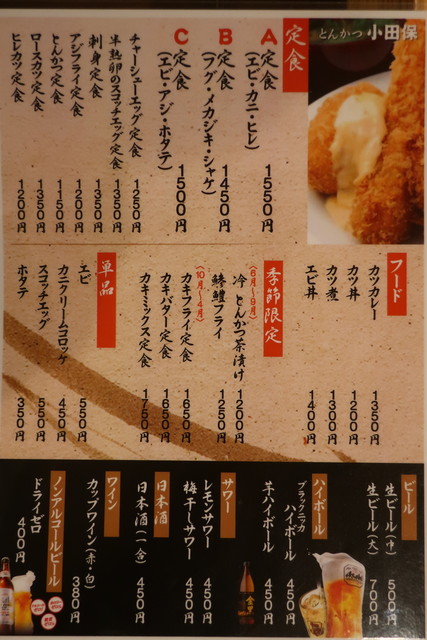 とんかつ 小田保
定食
A定食
(エビ・カニ・ヒレ)
1550円
B定食
(フグ・メカジキ・シャケ)
1450円
C定食
(エビ・アジ・ホタテ)
1500円
チャーシューエッグ定食 1250円
半熟卵のスコッチエッグ定食 1350円
刺身定食 1350円
アジフライ定食 1200円
とんかつ定食 1150円
ロースカツ定食 1350円
ヒレカツ定食 1200円
フード
カツカレー 1350円
カツ丼 1200円
カツ煮 1300円
エビ丼 1400円
季節限定
(6月〜9月)
冷 とんかつ茶漬け 1200円
鱚鱧フライ 1250円
(10月〜4月)
カキフライ定食 1650円
カキバター定食 1650円
カキミックス定食 1750円
単品
エビ 550円
カニクリームコロッケ 450円
スコッチエッグ 550円
ホタテ 350円
ビール
生ビール(中) 500円
生ビール(大) 700円
ハイボール
ブラックニッカ
ハイボール 450円
芋ハイボール 450円
サワー
レモンサワー 450円
梅干しサワー 450円
日本酒
日本酒(一合) 450円
ワイン
カップワイン(赤・白) 380円
ノンアルコールビール
ドライゼロ 400円
Asahi